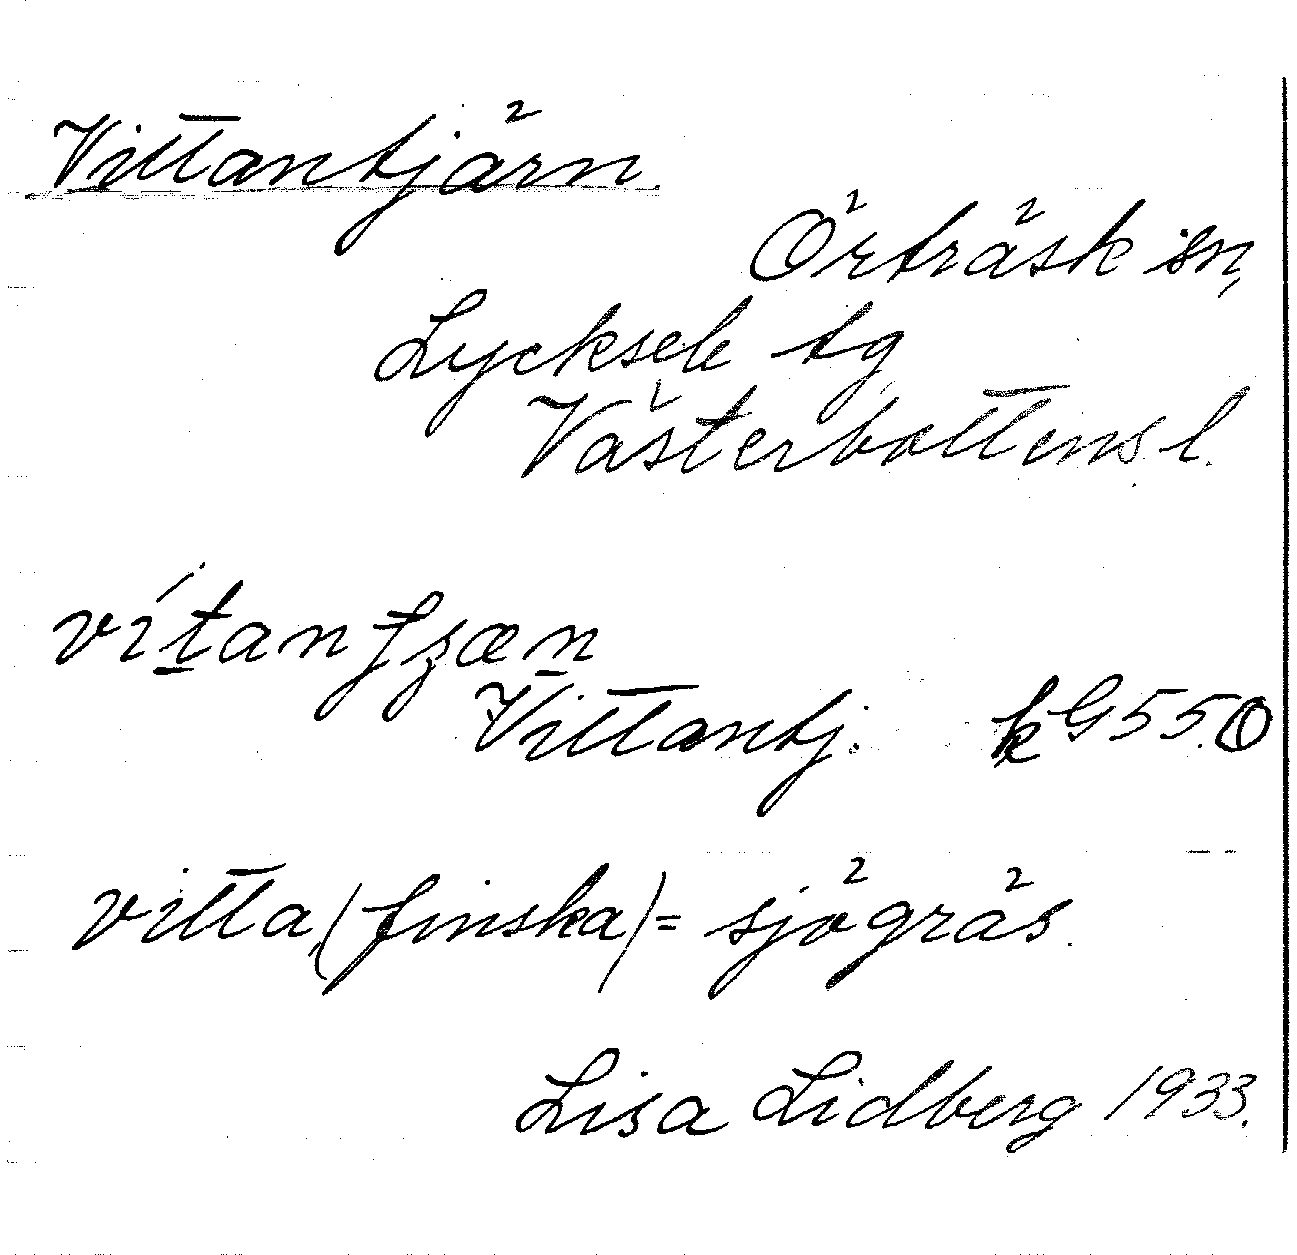 Vittantjärn
Örträsk sn,
Lycksele tg
Västerbottens l.
Vittantj. kG 55.O
vitta (finska) = sjögräs.
Lisa Lidberg 1933.